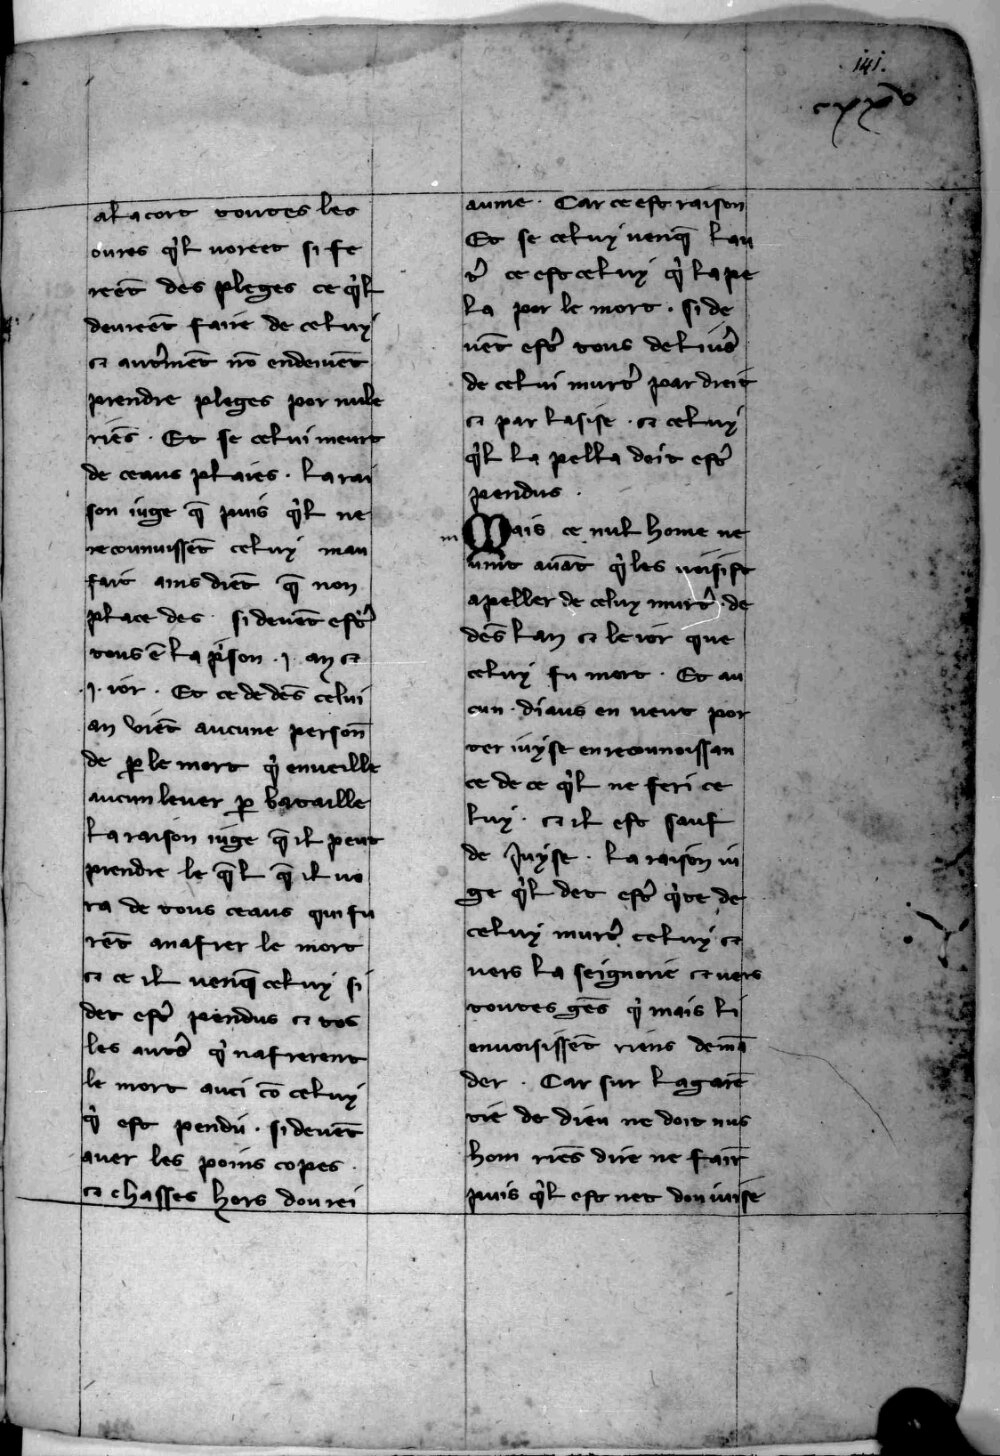 141.
cxxxv
al acort toutes les
oures q̉l uorẽt si fe
rẽt des pleges ce q̉l
deurẽt faire de celuy
⁊ autrm̃ẽt nõ endeuẽt
prendre pleges por nule
riẽs · Et se celui meurt
de ceaus plaies · la rai
son iuge q̃ puis q̉l ne
reconuissẽt celuy mau
fait ains diẽt q̃ non
place des · si deuẽt estr̉
tous ẽ la p̉son · j · an ⁊
· j · ior · Et ce dedẽs celui
an viẽt aucune persoñ
de ꝑ le mort q̉ enueille
aucun leuer ꝑ bataille
la raison iuge q̃ il peut
prendre le q̃l q̃ il uo
ra de tous ceaus qui fu
rẽt a nafrer le mort
⁊ ce il uenq̃ celuy si
det estr̉ pendus ⁊ tos
les autr̉s q̉ nafrerent
le mort auci cõ celuy
q̉ est pendu · si deuẽt
auer les poins copes ·
⁊ chasses hors dou rei
aume · Car ce est raison
Et se celuy uenq̃ lau
tr̉ ce est celuy q̉ lape
la por le mort · si de
uẽt estr̉ tous deliur̉s
de celui murtr̉ par dreit
⁊ par lasise · ⁊ celuy
q̉l la pella doit estr̉
pendus ·
m
Mais ce nul home ne
uint auãt q̉ les uoisist
apeller de celuy murtr̉ · de
dẽs lan ⁊ le ior que
celuy fu mort · Et au
cun · diaus en ueut por
ter iuyse en reconnoissan
ce de ce q̉l ne feri ce
luy · ⁊ il est sauf
de Juyse · la raison iu
ge q̉l det estr̉ q̉te de
celuy murtr̉ celuy ⁊
uers la seignorie ⁊ uers
toutes gẽs q̉ mais li
enuoisissẽt riens demã
der · Car sur la garẽ
tie de dieu ne doit nus
hom riẽs dire ne fair̃
puis q̉l est net dou iuise